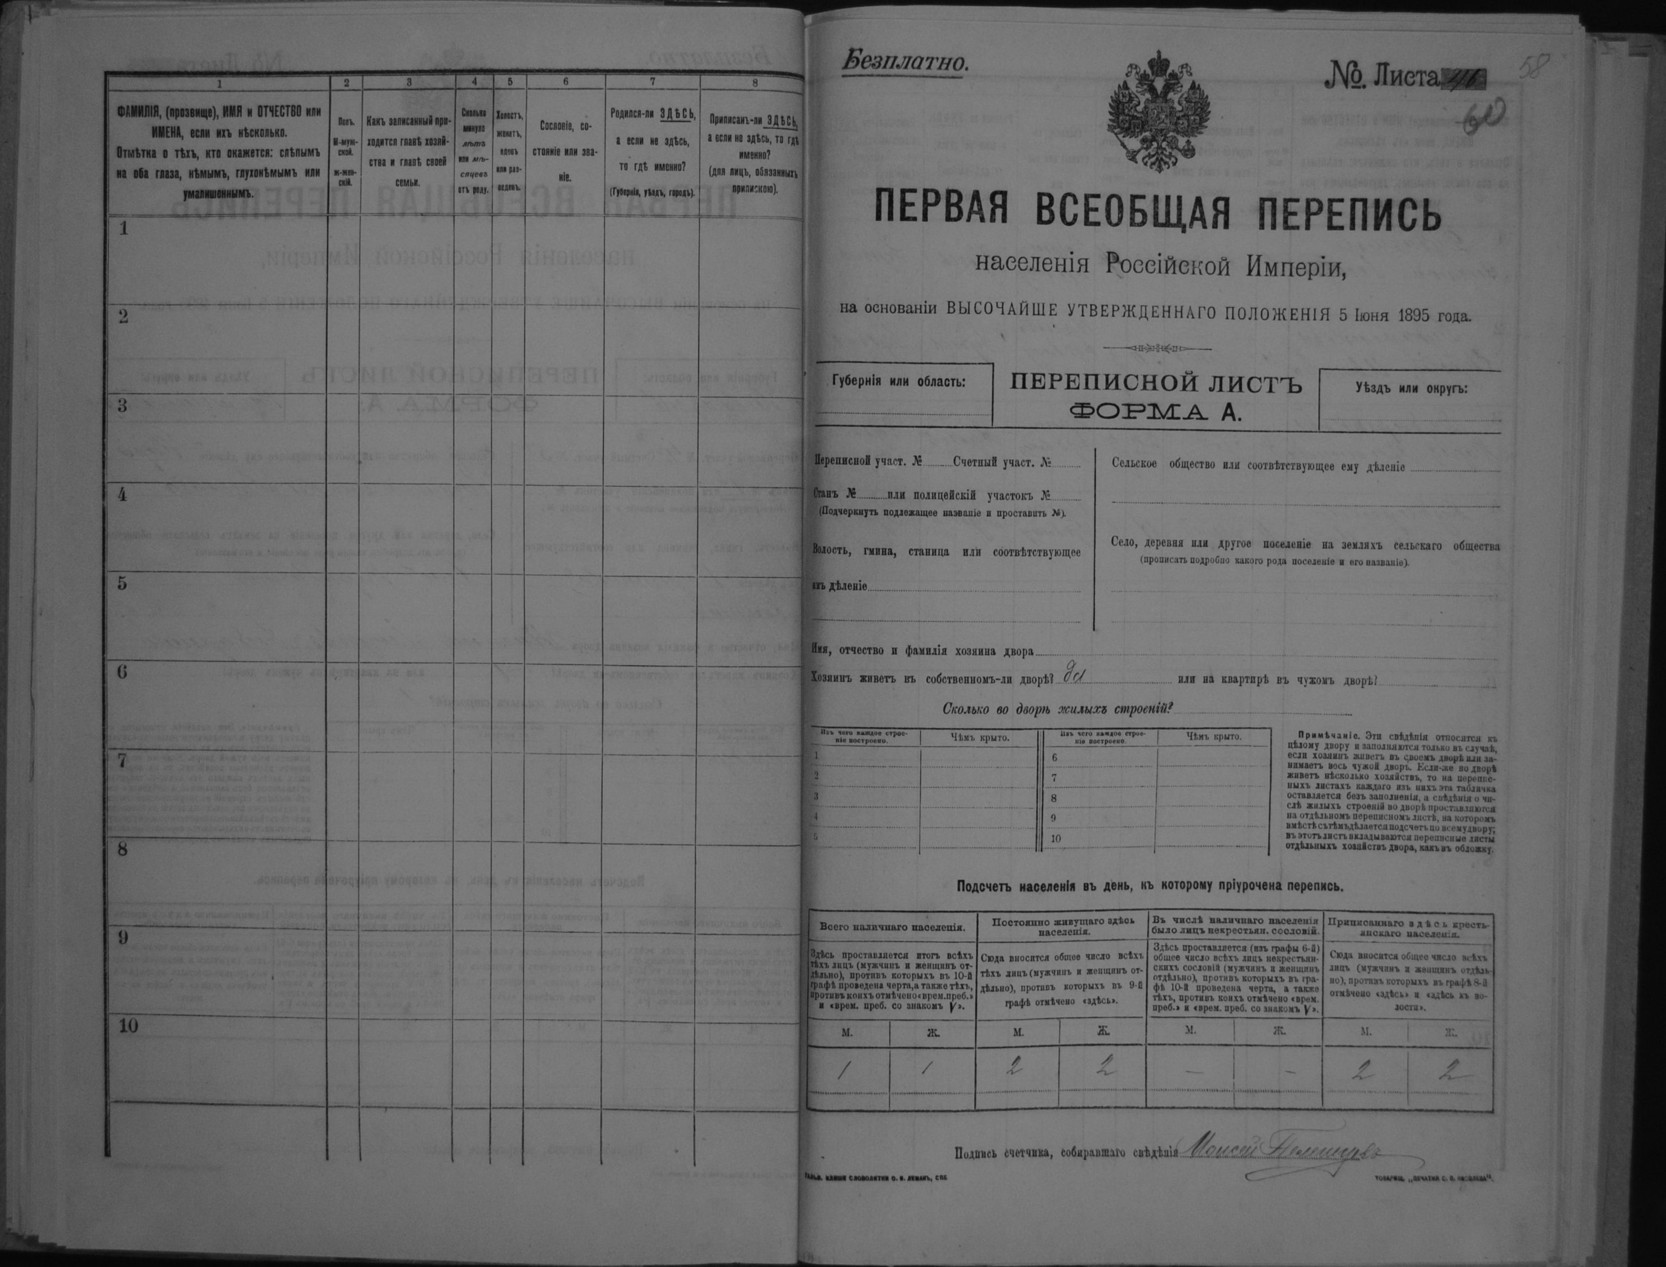 1 2 3 4 5 6 7 8
ФАМИЛІЯ, (прозвище), ИМЯ и ОТЧЕСТВО или
ИМЕНА, если ихъ нѣсколько.
Отмѣтка о тѣхъ, кто окажется: слѣпымъ
на оба глаза, нѣмымъ, глухонѣмымъ или
умалишеннымъ.
Полъ.
М-муж-
ской.
ж-жен-
скій.
Какъ записанный при-
ходится главѣ хозяй-
ства и главѣ своей
семьи.
Сколько
минуло
лѣтъ
или мѣ-
сяцевъ
отъ роду.
Холостъ,
женатъ,
вдовъ
или раз-
веденъ.
Сословіе, со-
стояніе или зва-
ніе.
Родился-ли ЗДѢСЬ,
а если не здѣсь,
то гдѣ именно?
(Губернія, уѣздъ, городъ).
Приписанъ-ли ЗДѢСЬ,
а если не здѣсь, то гдѣ
именно?
(для лицъ, обязанныхъ
припискою).
1
2
3
4
5
6
7
8
9
10
Безплатно.
№. Листа
58
60
ПЕРВАЯ ВСЕОБЩАЯ ПЕРЕПИСЬ
населенія Россійской Имперіи,
на основаніи ВЫСОЧАЙШЕ УТВЕРЖДЕННАГО ПОЛОЖЕНІЯ 5 Іюня 1895 года.
Губернія или область:
ПЕРЕПИСНОЙ ЛИСТЪ
ФОРМА А.
Уѣздъ или округъ:
Переписной участ. № Счетный участ. №
Станъ № или полицейскій участокъ №
(Подчеркнуть подлежащее названіе и проставить №).
Волость, гмина, станица или соотвѣтствующее
имъ дѣленіе
Сельское общество или соотвѣтствующее ему дѣленіе
Село, деревня или другое поселеніе на земляхъ сельскаго общества
(прописать подробно какого рода поселеніе и его названіе).
Имя, отчество и фамилія хозяина двора
Хозяинъ живетъ въ собственномъ-ли дворѣ? или на квартирѣ въ чужомъ дворѣ?
Сколько во дворѣ жилыхъ строеній?
Изъ чего каждое строе-
ніе построено.
Чѣмъ крыто.
Изъ чего каждое строе-
ніе построено.
Чѣмъ крыто.
1 6
2 7
3 8
4 9
5 10
Примѣчаніе. Эти свѣдѣнія относятся къ
цѣлому двору и заполняются только въ случаѣ,
если хозяинъ живетъ въ своемъ дворѣ или за-
нимаетъ весь чужой дворъ. Если-же во дворѣ
живетъ нѣсколько хозяйствъ, то на перепис-
ныхъ листахъ каждаго изъ нихъ эта табличка
оставляется безъ заполненія, а свѣдѣнія о чи-
слѣ жилыхъ строеній во дворѣ проставляются
на отдѣльномъ переписномъ листѣ, на которомъ
вмѣстѣ съ тѣмъ дѣлается подсчетъ по всему двору;
въ этотъ листъ вкладываются переписные листы
отдѣльныхъ хозяйствъ двора, какъ въ обложку.
Подсчетъ населенія въ день, къ которому пріурочена перепись.
Всего наличнаго населенія.
Здѣсь проставляется итогъ всѣхъ
тѣхъ лицъ (мужчинъ и женщинъ от-
дѣльно), противъ которыхъ въ 10-й
графѣ проведена черта, а также тѣхъ,
противъ коихъ отмѣчено «врем. преб.»
и «врем. преб. со знакомъ V».
Постоянно живущаго здѣсь
населенія.
Сюда вносится общее число всѣхъ
тѣхъ лицъ (мужчинъ и женщинъ от-
дѣльно), противъ которыхъ въ 9-й
графѣ отмѣчено «здѣсь».
Въ числѣ наличнаго населенія
было лицъ некрестьян. сословій.
Здѣсь проставляется (изъ графы 6-й)
общее число всѣхъ лицъ некрестьян-
скихъ сословій (мужчинъ и женщинъ
отдѣльно), противъ которыхъ въ гра-
фѣ 10-й проведена черта, а также
тѣхъ, противъ коихъ отмѣчено «врем.
преб.» и «врем. преб. со знакомъ V».
Приписаннаго здѣсь кресть-
янскаго населенія.
Сюда вносится общее число всѣхъ
лицъ (мужчинъ и женщинъ отдѣль-
но), противъ которыхъ въ графѣ 8-й
отмѣчено «здѣсь» и «здѣсь въ во-
лости».
М. Ж. М. Ж. М. Ж. М. Ж.
1 1 2 2 — — 2 2
Подпись счетчика, собиравшаго свѣдѣнія Моисей